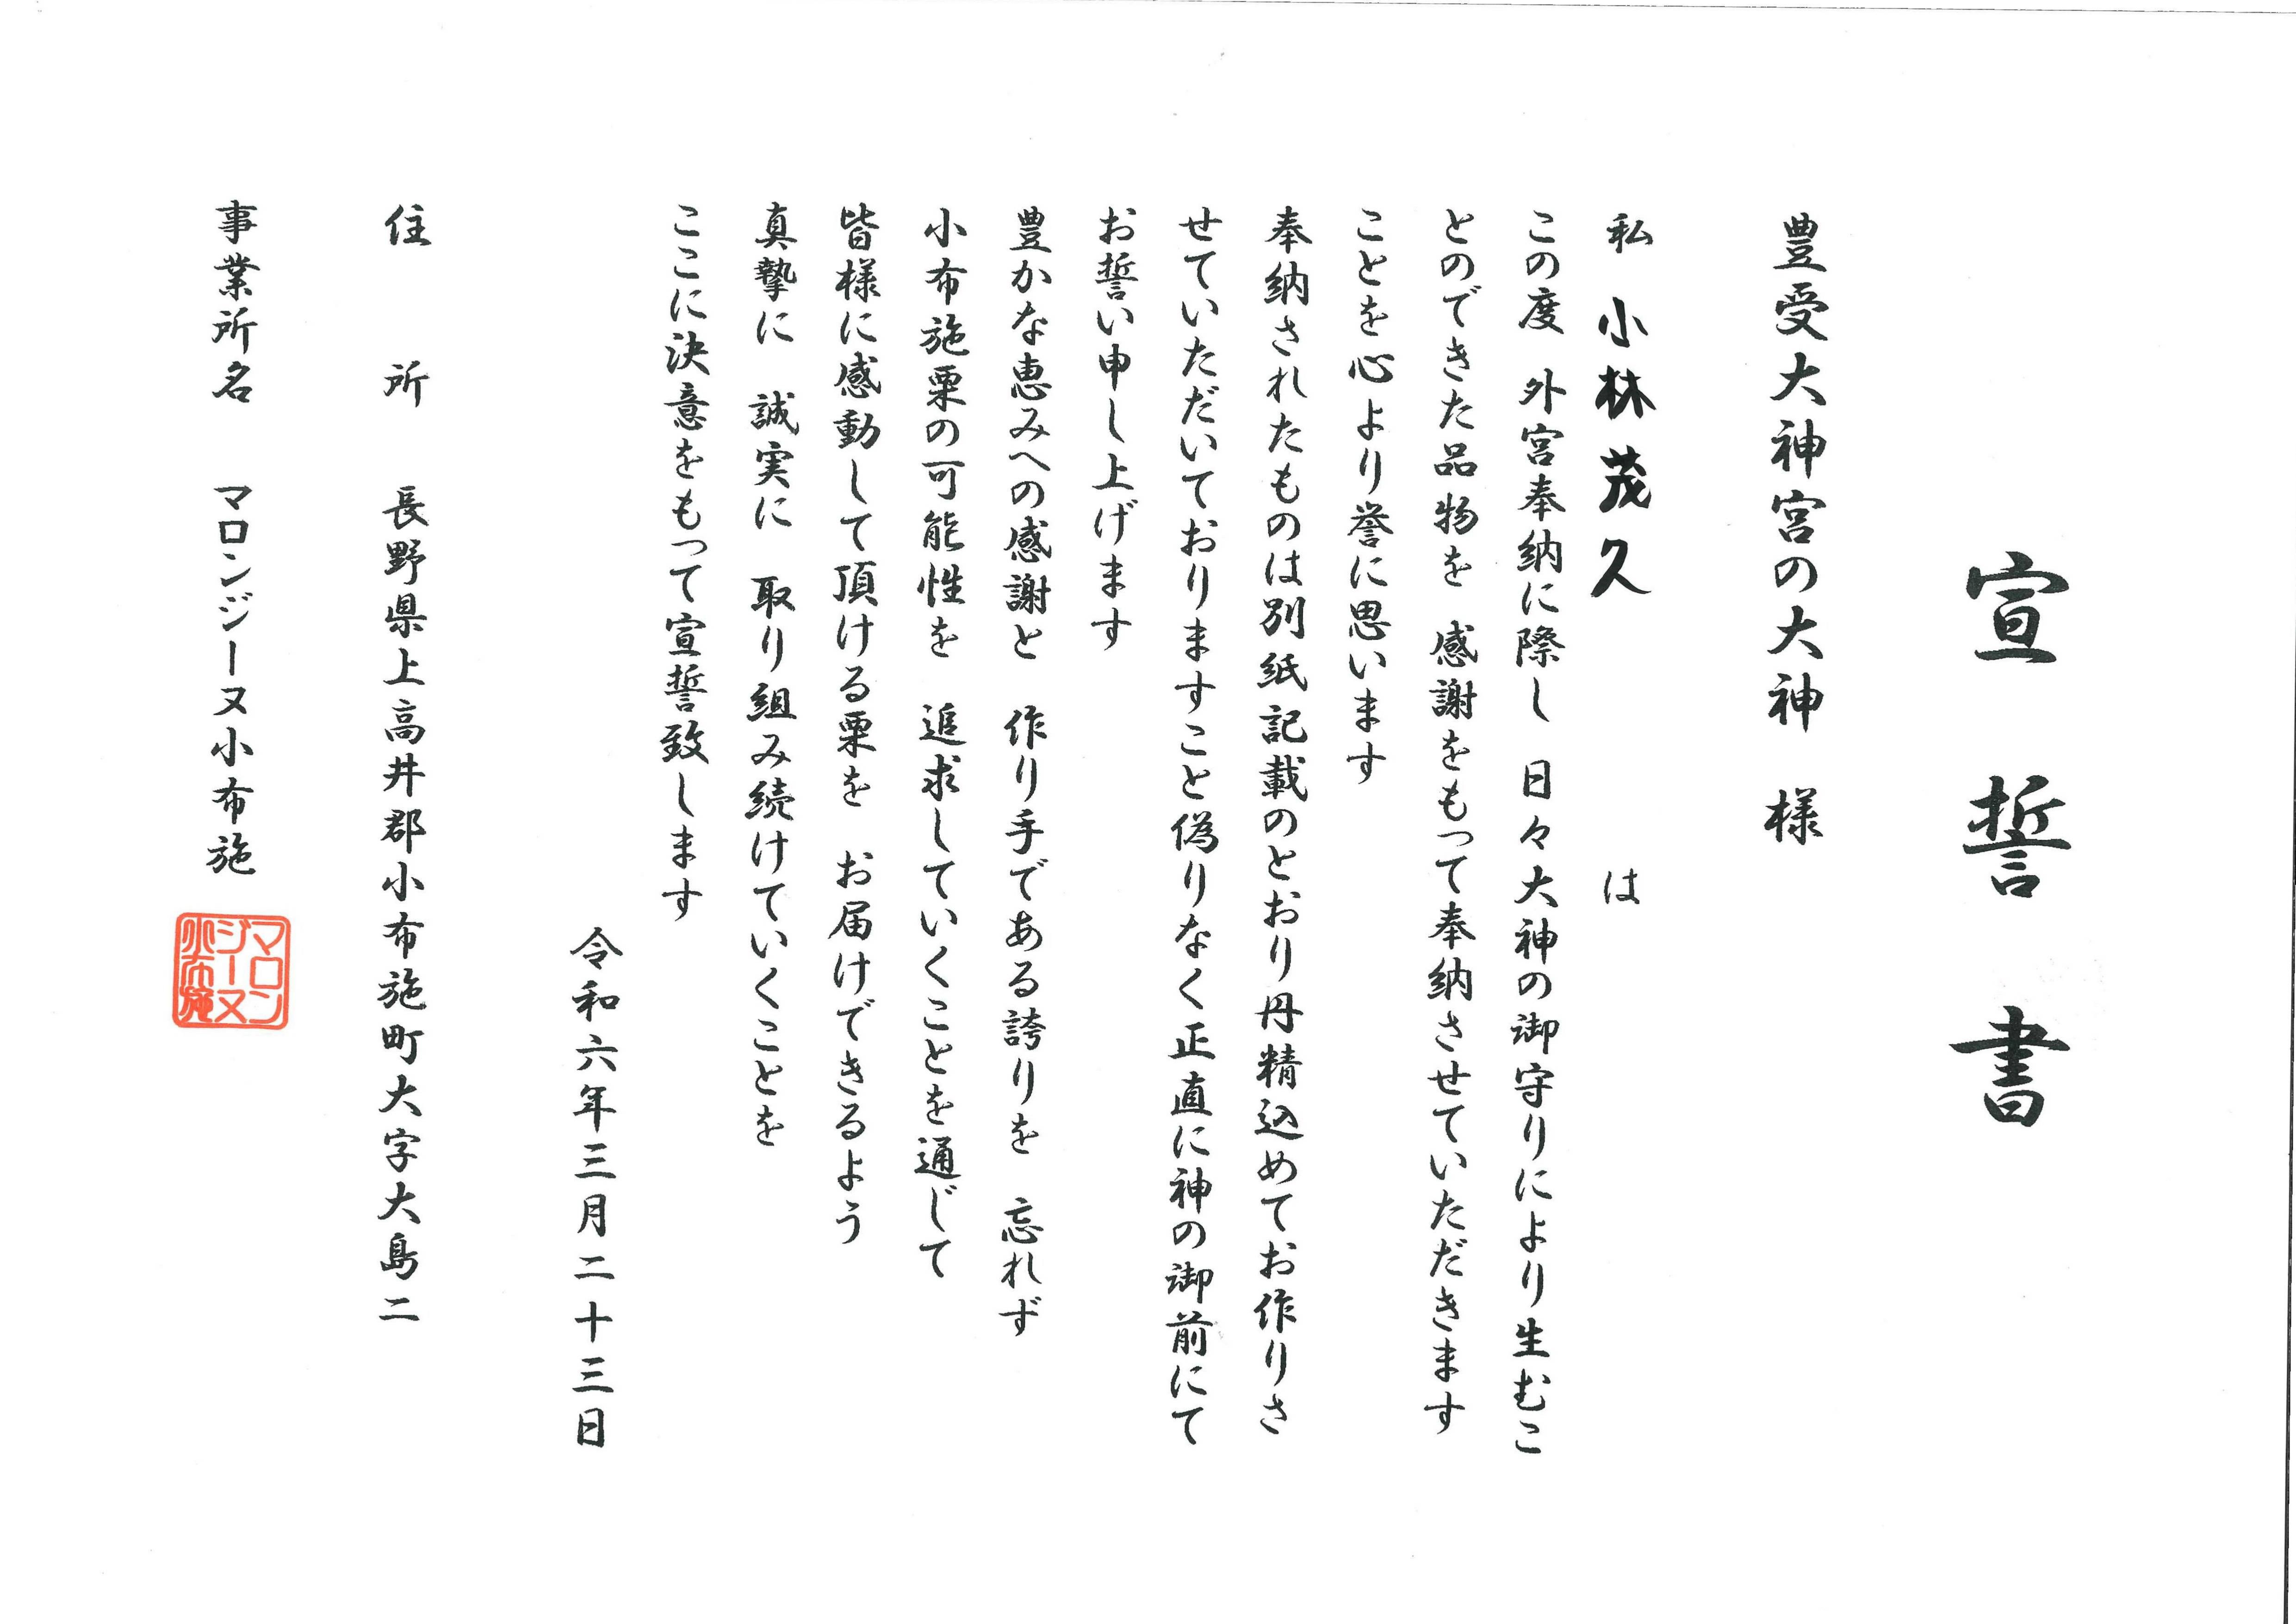 宣誓書
豊受大神宮の大神　様
私　小林茂久　は
この度　外宮奉納に際し　日々大神の御守りにより生むこ
とのできた品物を　感謝をもって奉納させていただきます
ことを心より誉に思います
奉納されたものは別紙記載のとおり丹精込めてお作りさ
せていただいておりますこと偽りなく正直に神の御前にて
お誓い申し上げます
豊かな恵みへの感謝と　作り手である誇りを　忘れず
小布施栗の可能性を　追求していくことを通じて
皆様に感動して頂ける栗を　お届けできるよう
真摯に　誠実に　取り組み続けていくことを
ここに決意をもって宣誓致します
令和六年三月二十三日
住　所　長野県上高井郡小布施町大字大島二
事業所名　マロンジーヌ小布施
マロン
ジーヌ
小布施